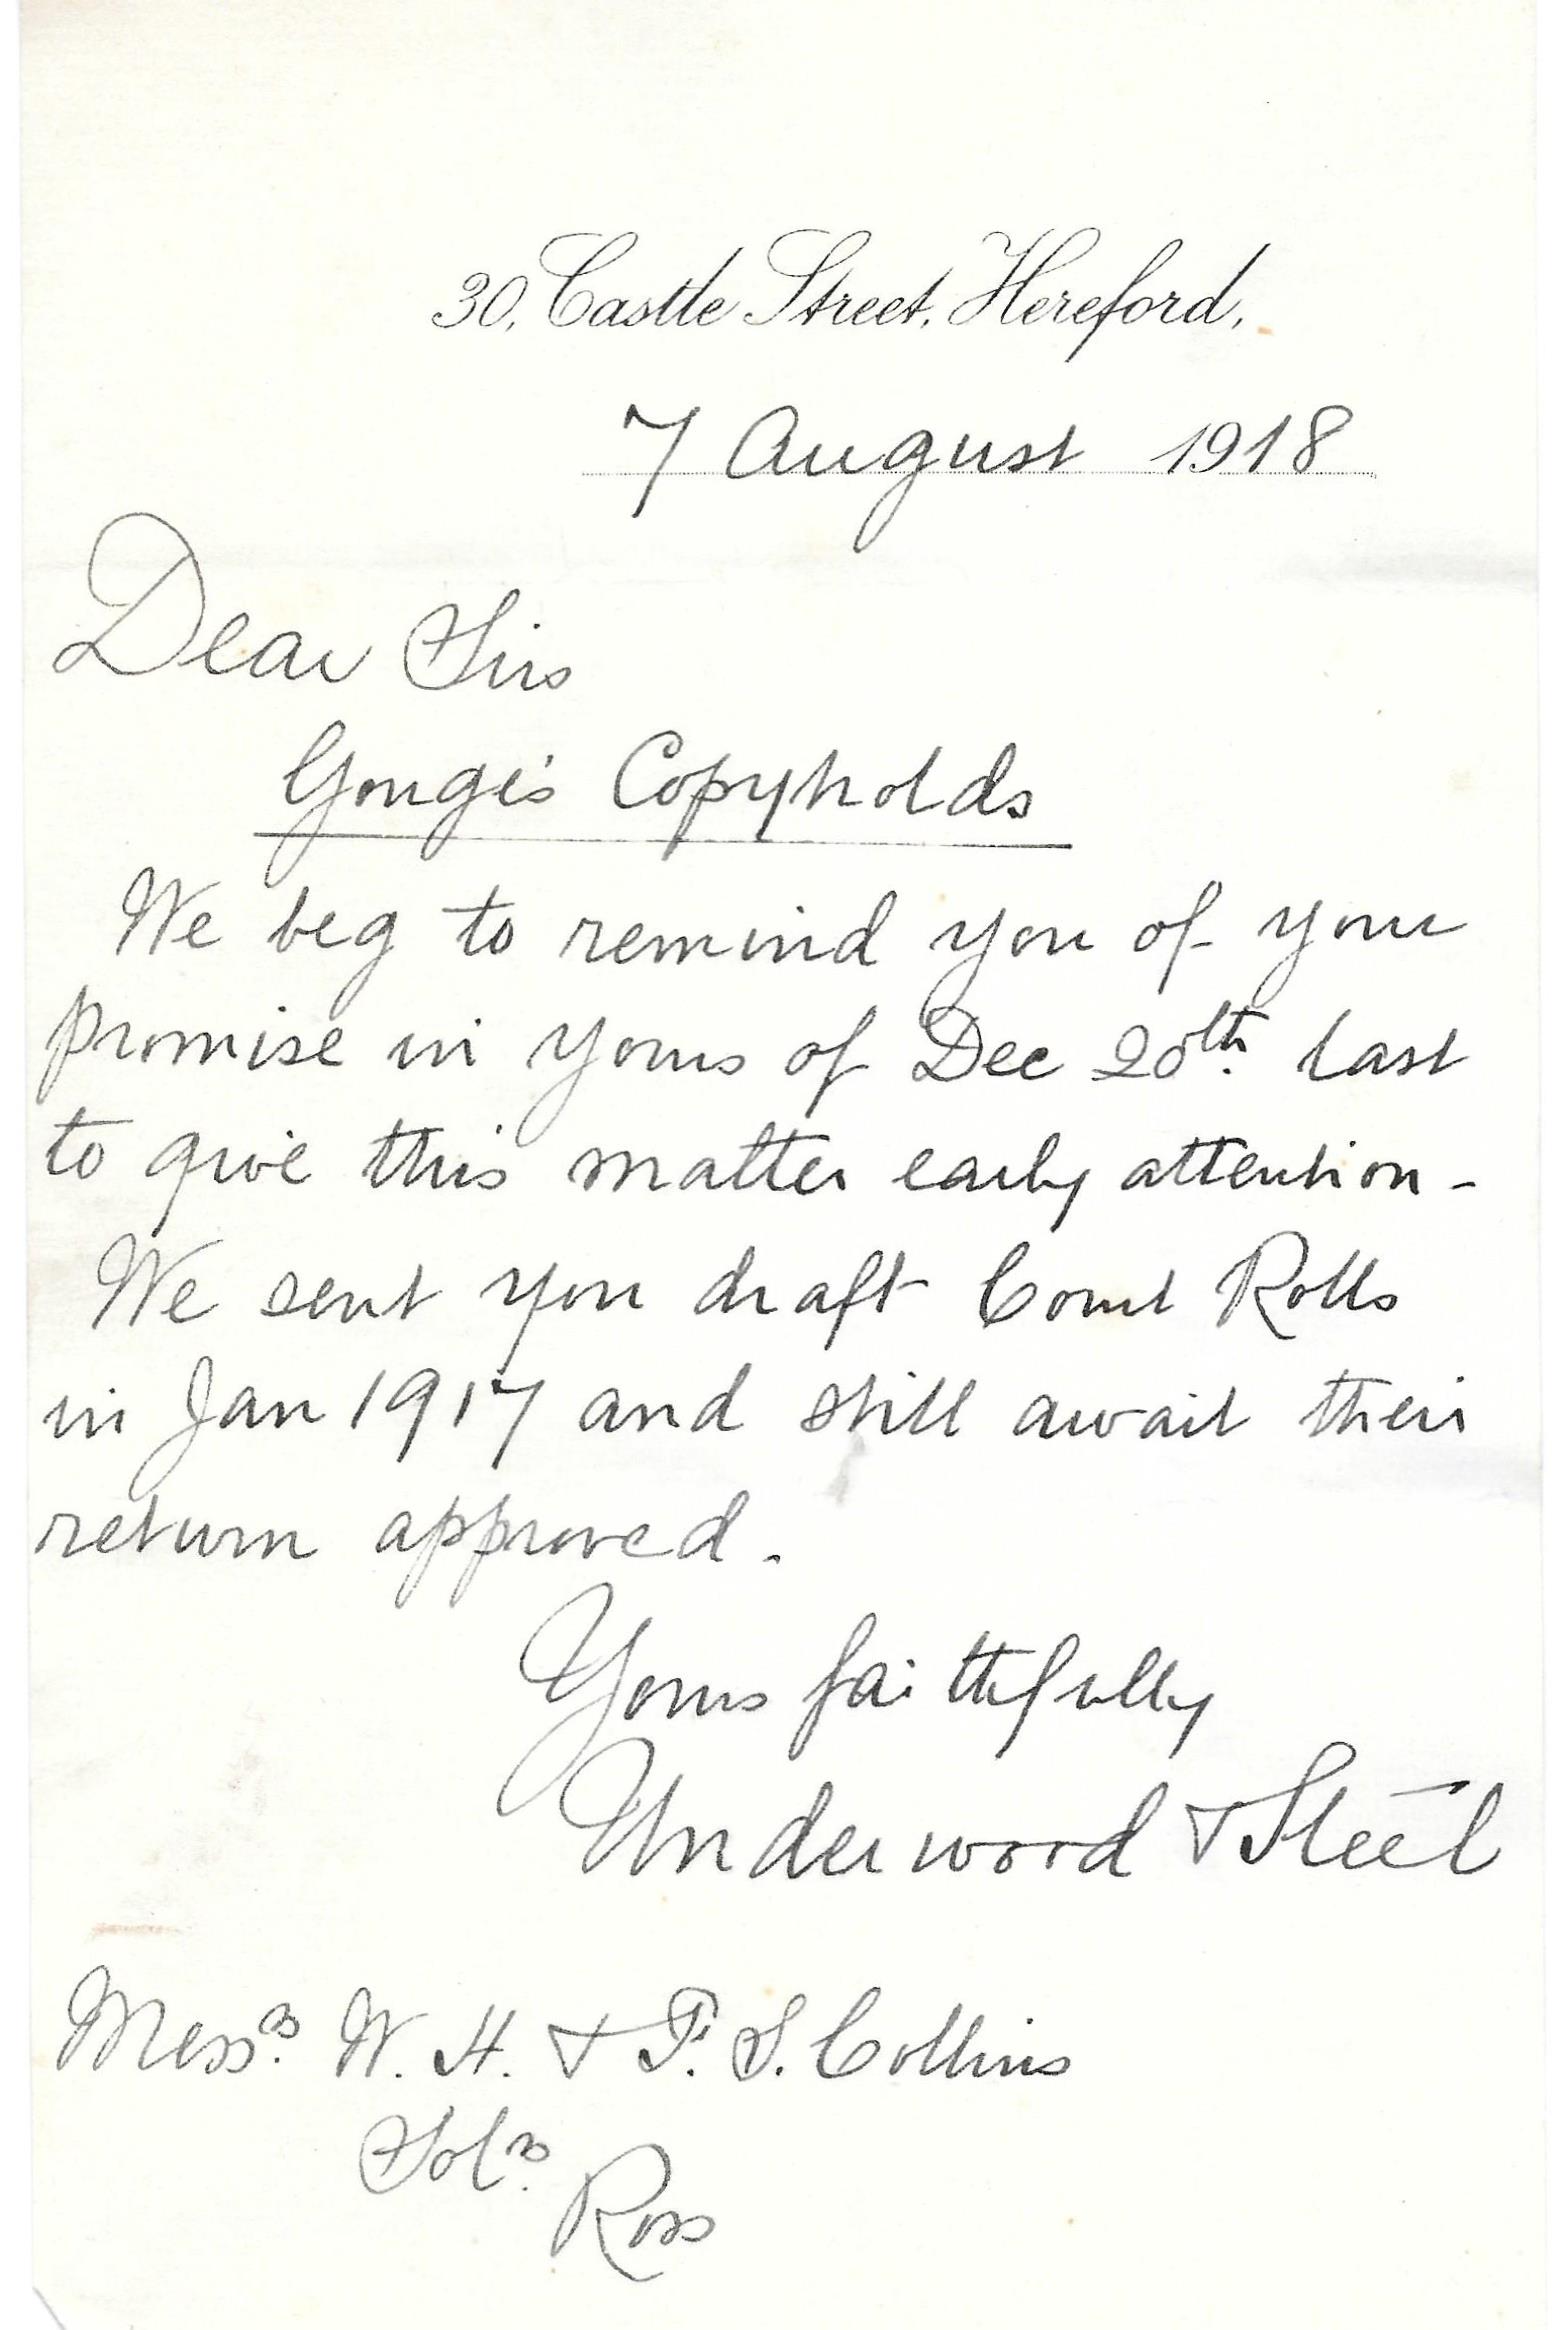 30, Castle Street, Hereford,
7 August 1918
Dear Sirs
Gouge's Copyholds
We beg to remind you of your
promise in yours of Dec 20th. last
to give this matter early attention -
We sent you draft Court Rolls
in Jan 1917 and still await their
return approved.
Yours faithfully
Underwood & Steel
Messrs. W. H. & F. S. Collins
Solrs.
Ross